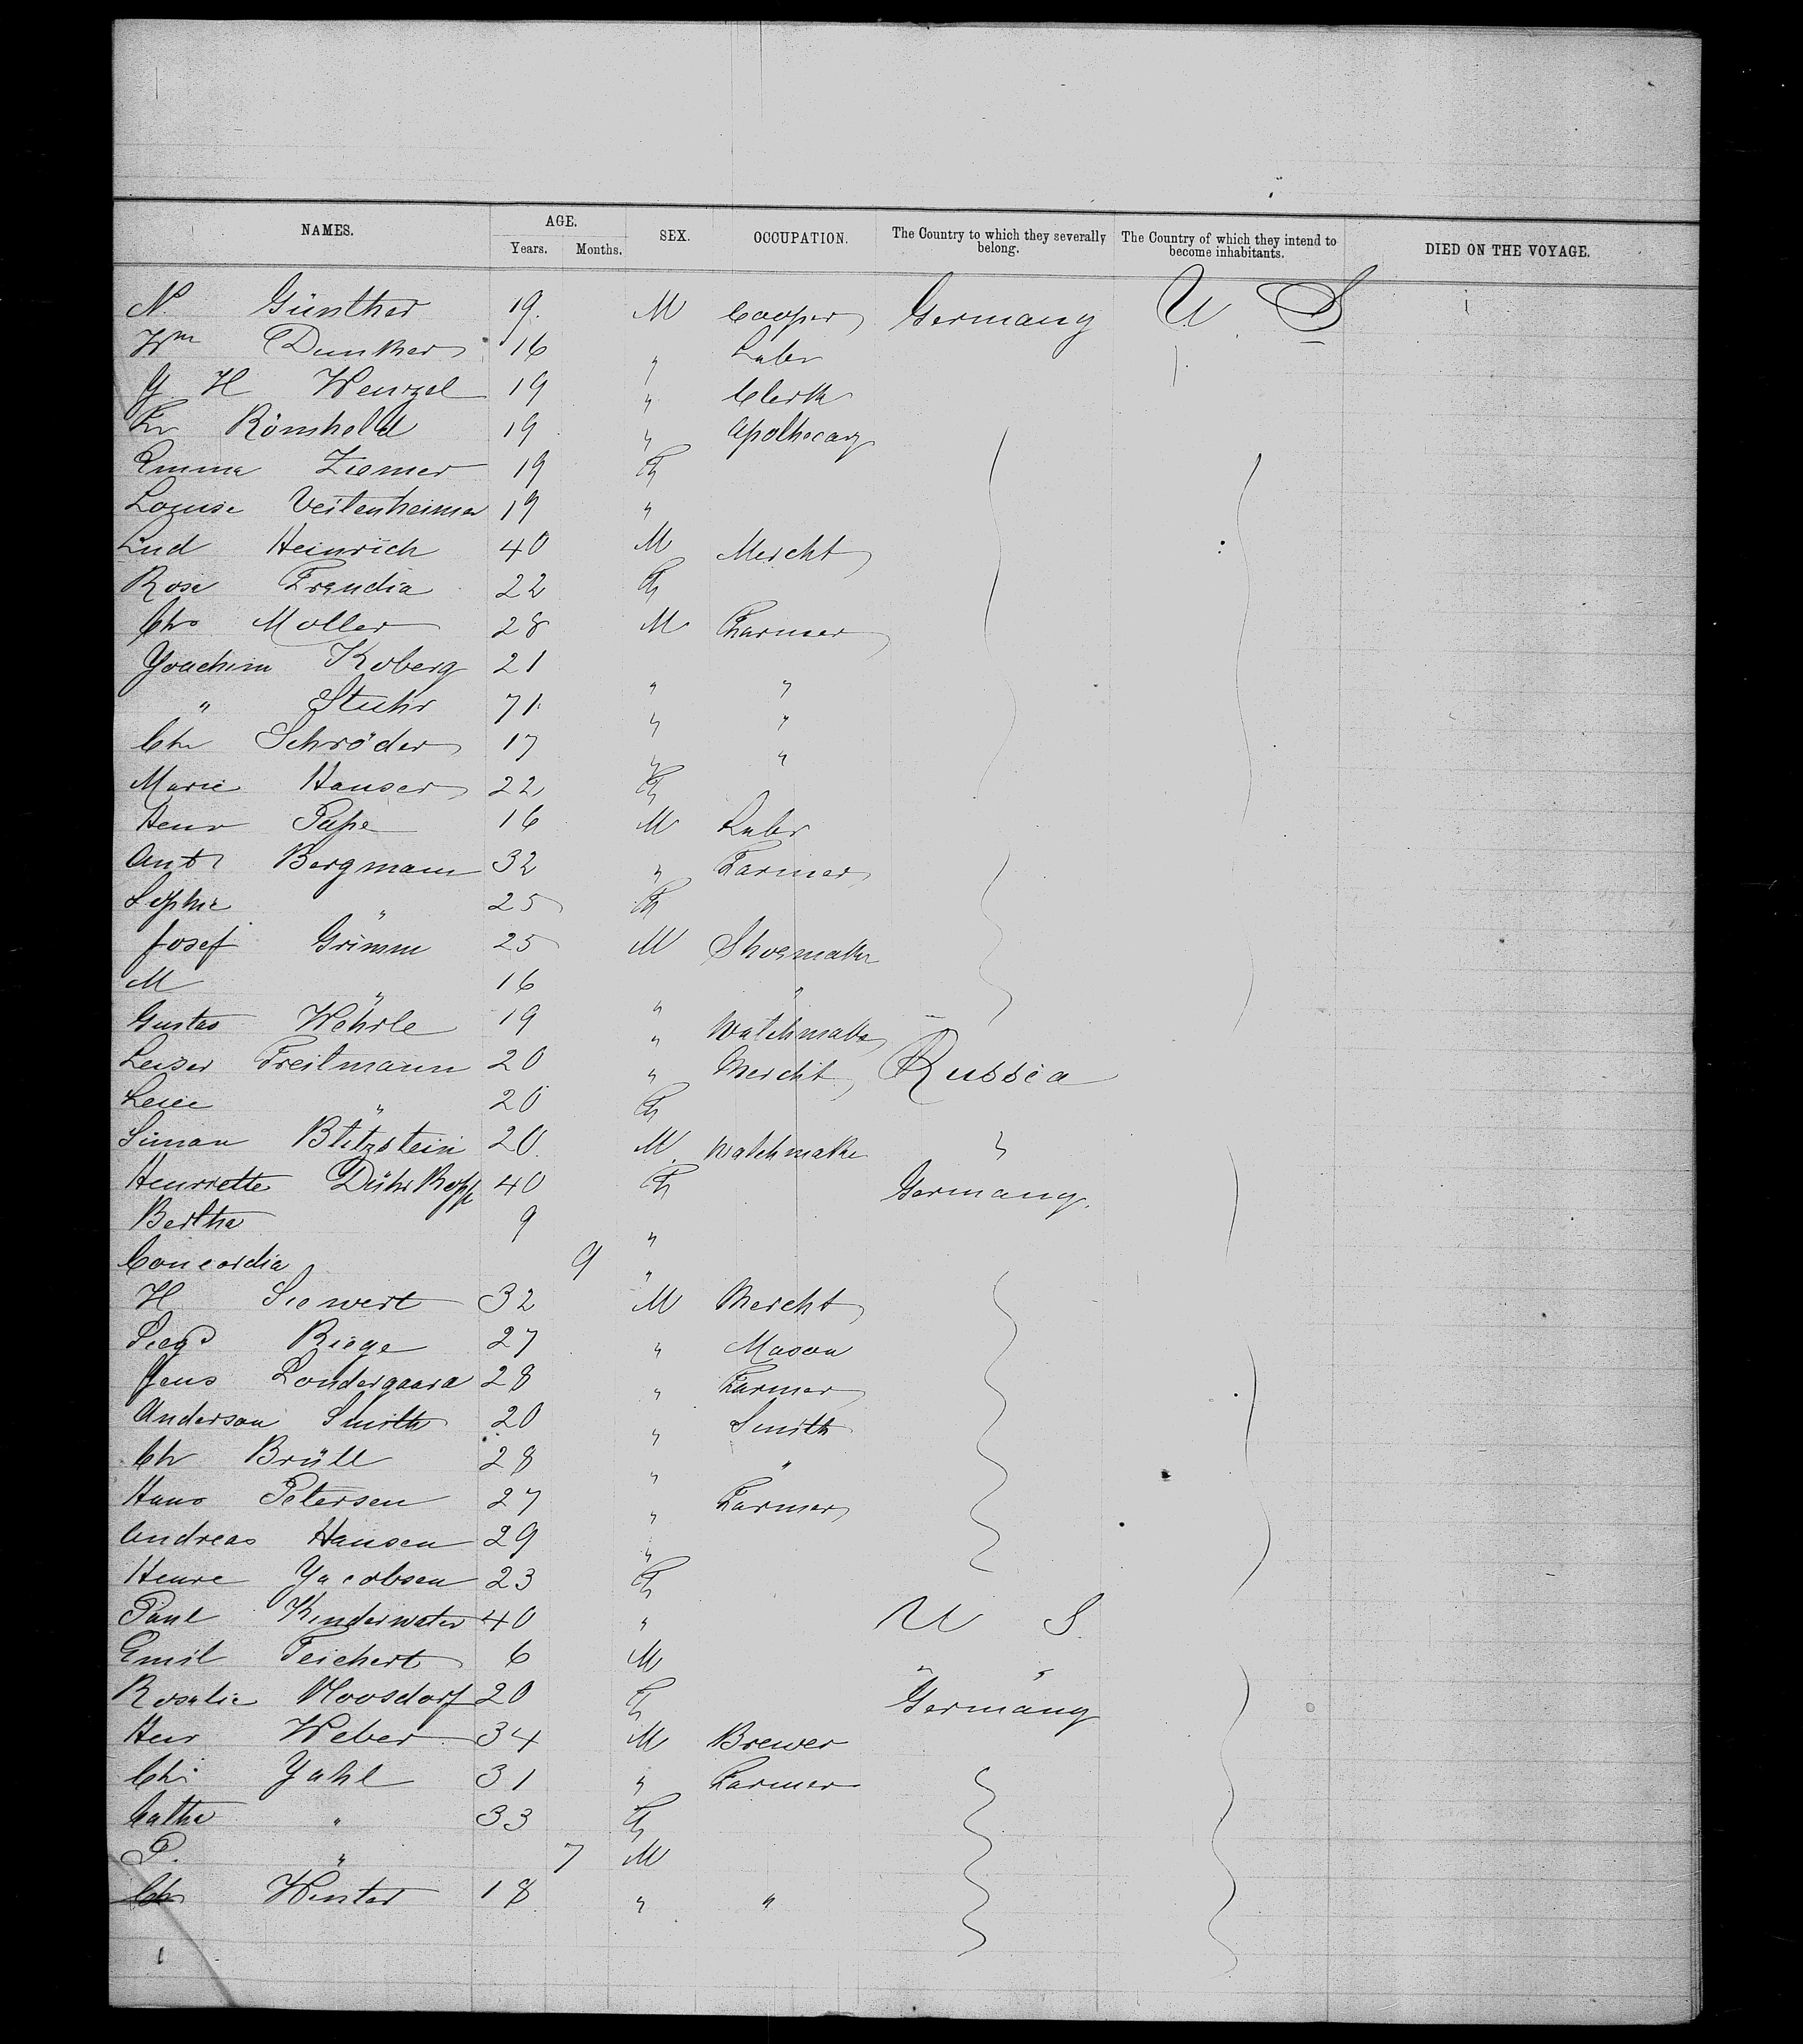 NAMES. AGE. SEX. OCCUPATION. The Country to which they severally belong. The Country of which they intend to become inhabitants. DIED ON THE VOYAGE.
Years. Months.
N. Günther 19. M Cooper Germany U S
Wm Dunker 16 " Labr
Y H Wenzel 19 " Clerk
Fr Römheld 19 " Apothecary
Emma Ziemer 19 F
Louise Veitenheimer 19 "
Lud Heinrich 40 M Mercht
Rose Frendia 22 F
Chr Moller 28 M Farmer
Yoachim Koberg 21 " "
" Stuhr 71 " "
Chr Schröder 17 " "
Marie Hauser 22 F
Henr Pape 16 M Labr
Ant Bergmann 32 " Farmer
Sophie " 25 F
Josef Grimm 25 M Shoemaker
M " 16 " "
Gustav Wehrle 19 " Watchmaker
Leiser Freitmann 20 " Mercht Russia
Leie " 20 F
Siman Blitzstein 20 M Watchmaker "
Henriette Dührkopp 40 F Germany
Bertha 9 "
Concordia 9 "
H Siewert 32 M Mercht
Riege 27 " Mason
Jens Londergaard 28 " Farmer
Anderson Smith 20 " Smith
Chr Brüll 28 " "
Hans Petersen 27 " Farmer
Andreas Hansen 29 "
Henre Yacobsen 23 F
Paul Kinderwater 40 " U S
Emil Teichert 6 M " "
Rosalie Moosdorf 20 F Germany
Henr Weber 34 M Brewer
Chr Yahl 31 " Farmer
Cathe " 33 F
P. " 7 M
Chr Winter 18 " "